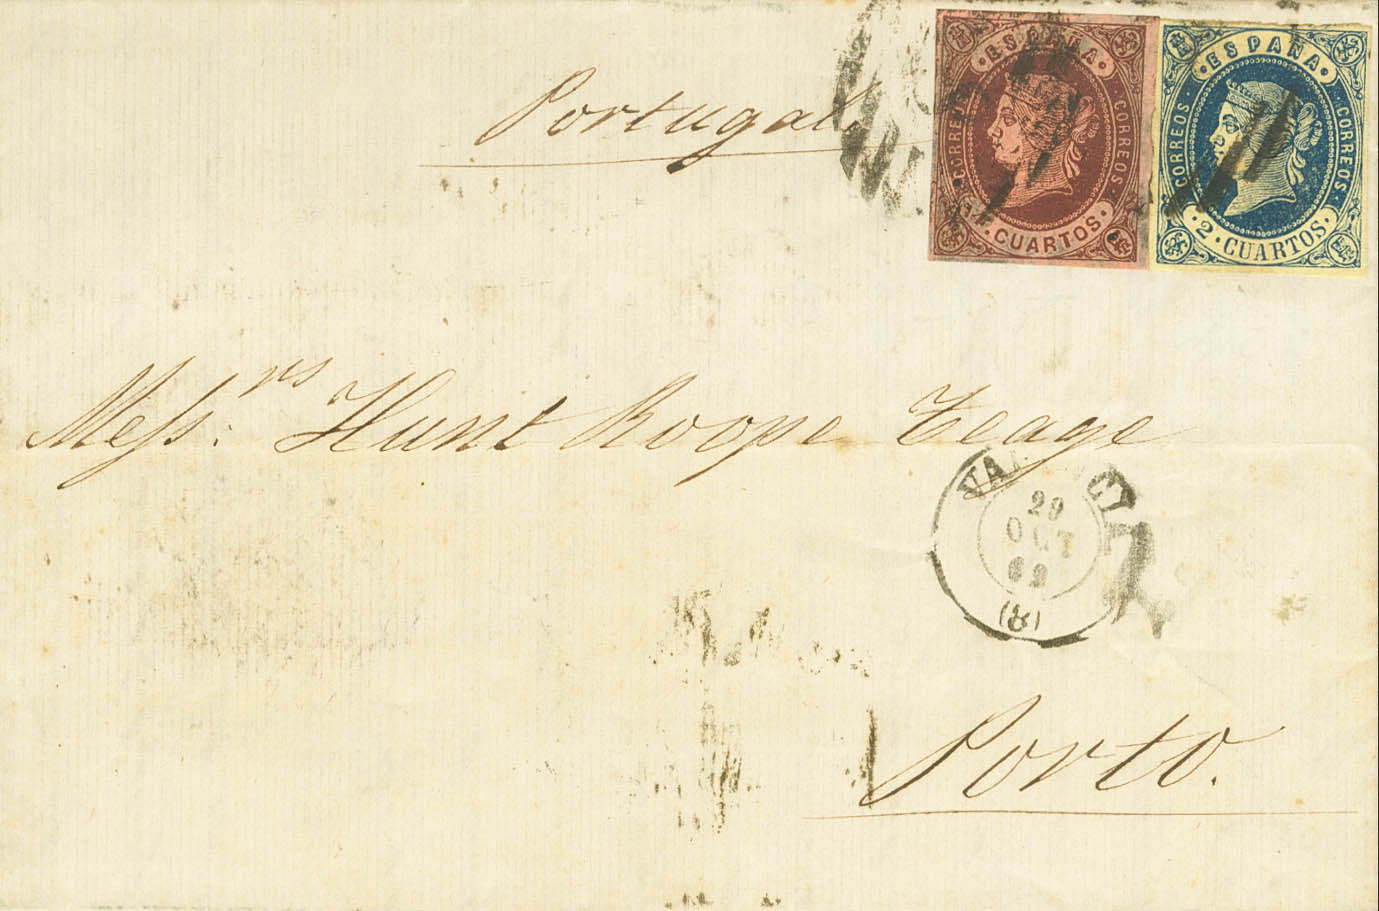 Portugal
ESPAÑA
CORREOS CORREOS
CUARTOS
ESPAÑA
CORREOS CORREOS
2 CUARTOS
Messrs. Hunt Roope Teage
29
OCT
(8)
Porto.